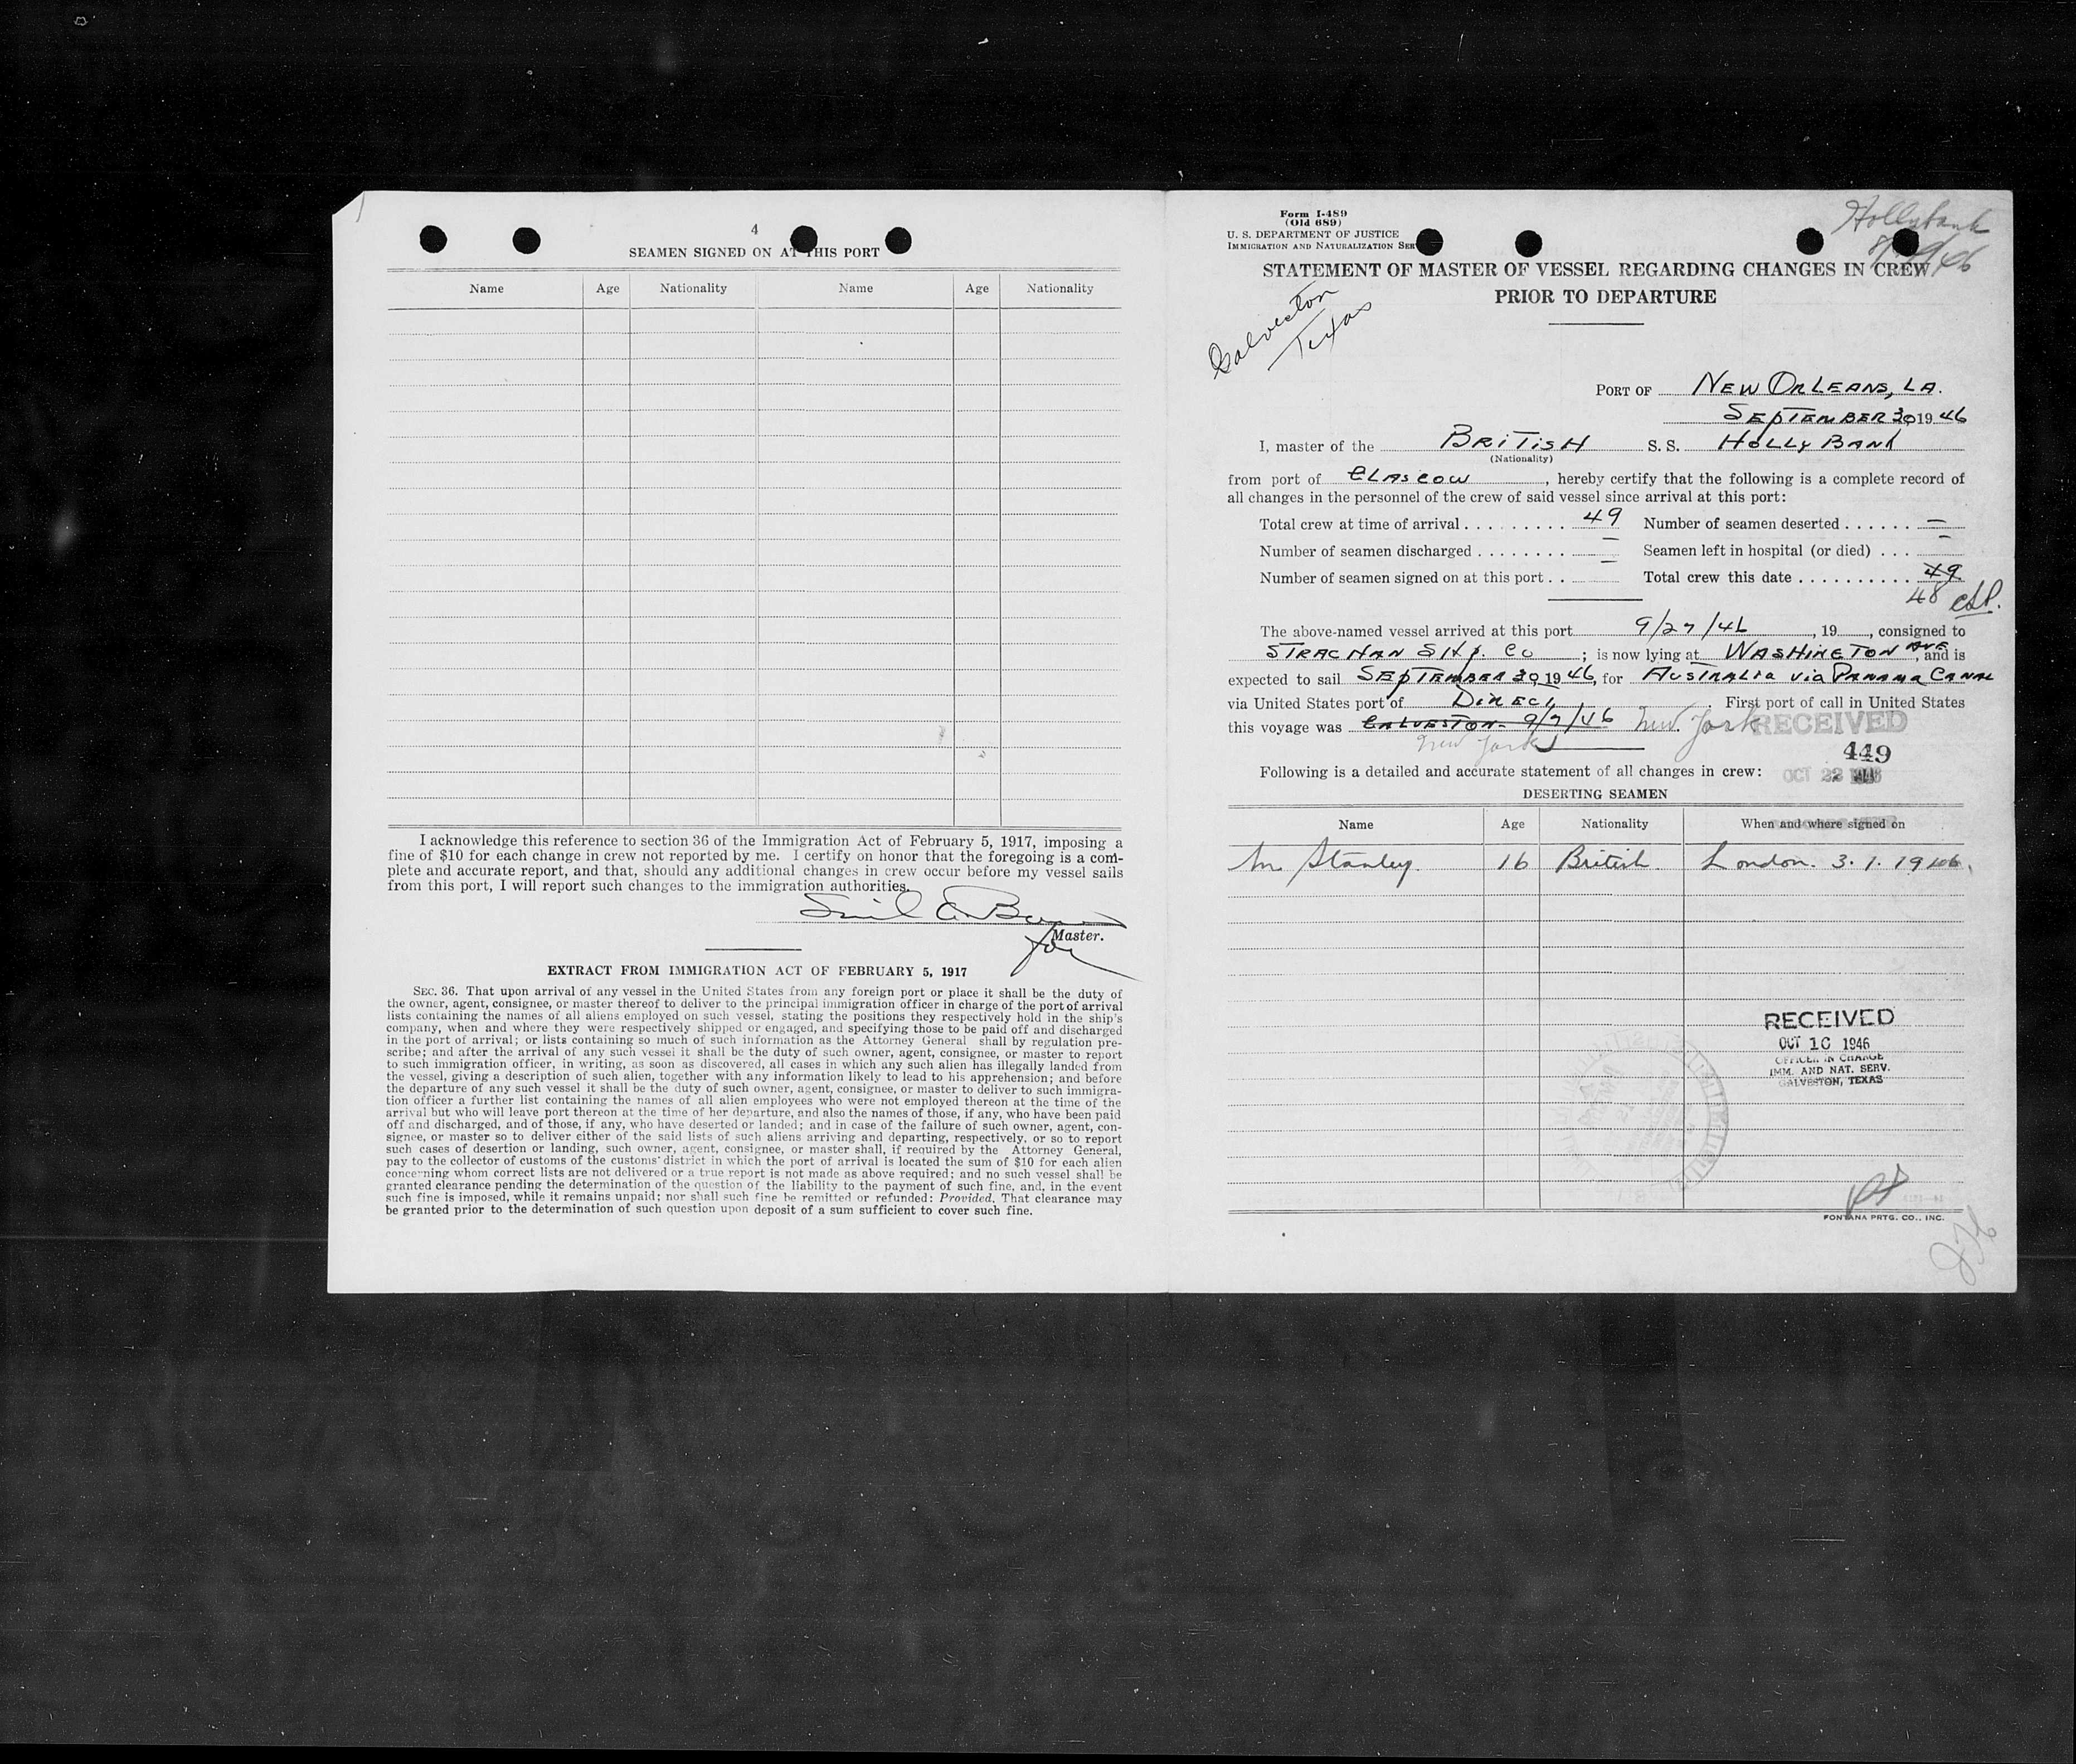 4
SEAMEN SIGNED ON AT THIS PORT
Name Age Nationality Name Age Nationality
I acknowledge this reference to section 36 of the Immigration Act of February 5, 1917, imposing a
fine of $10 for each change in crew not reported by me. I certify on honor that the foregoing is a com-
plete and accurate report, and that, should any additional changes in crew occur before my vessel sails
from this port, I will report such changes to the immigration authorities.
for Master.
EXTRACT FROM IMMIGRATION ACT OF FEBRUARY 5, 1917
SEC. 36. That upon arrival of any vessel in the United States from any foreign port or place it shall be the duty of
the owner, agent, consignee, or master thereof to deliver to the principal immigration officer in charge of the port of arrival
lists containing the names of all aliens employed on such vessel, stating the positions they respectively hold in the ship's
company, when and where they were respectively shipped or engaged, and specifying those to be paid off and discharged
in the port of arrival; or lists containing so much of such information as the Attorney General shall by regulation pre-
scribe; and after the arrival of any such vessel it shall be the duty of such owner, agent, consignee, or master to report
to such immigration officer, in writing, as soon as discovered, all cases in which any such alien has illegally landed from
the vessel, giving a description of such alien, together with any information likely to lead to his apprehension; and before
the departure of any such vessel it shall be the duty of such owner, agent, consignee, or master to deliver to such immigra-
tion officer a further list containing the names of all alien employees who were not employed thereon at the time of the
arrival but who will leave port thereon at the time of her departure, and also the names of those, if any, who have been paid
off and discharged, and of those, if any, who have deserted or landed; and in case of the failure of such owner, agent, con-
signee, or master so to deliver either of the said lists of such aliens arriving and departing, respectively, or so to report
such cases of desertion or landing, such owner, agent, consignee, or master shall, if required by the Attorney General,
pay to the collector of customs of the customs district in which the port of arrival is located the sum of $10 for each alien
concerning whom correct lists are not delivered or a true report is not made as above required; and no such vessel shall be
granted clearance pending the determination of the question of the liability to the payment of such fine, and, in the event
such fine is imposed, while it remains unpaid; nor shall such fine be remitted or refunded: Provided, That clearance may
be granted prior to the determination of such question upon deposit of a sum sufficient to cover such fine.
Form I-489
(Old 689)
U. S. DEPARTMENT OF JUSTICE
IMMIGRATION AND NATURALIZATION SER
Hollybank
STATEMENT OF MASTER OF VESSEL REGARDING CHANGES IN CREW
PRIOR TO DEPARTURE
Galveston
Texas
PORT OF NEW ORLEANS, LA.
SEPTEMBER 30 1946
I, master of the BRITISH S. S. HOLLY BANK
(Nationality)
from port of GLASGOW, hereby certify that the following is a complete record of
all changes in the personnel of the crew of said vessel since arrival at this port:
Total crew at time of arrival 49 Number of seamen deserted —
Number of seamen discharged — Seamen left in hospital (or died) —
Number of seamen signed on at this port — Total crew this date 49
48
The above-named vessel arrived at this port 9/27/46, 19, consigned to
STRACHAN SHP. CO; is now lying at WASHINGTON AVE, and is
expected to sail SEPTEMBER 30, 1946, for AUSTRALIA VIA PANAMA CANAL
via United States port of DIRECT. First port of call in United States
this voyage was GALVESTON - 9/7/46 New York RECEIVED
New York
449
Following is a detailed and accurate statement of all changes in crew: OCT 22 1946
DESERTING SEAMEN
Name Age Nationality When and where signed on
M Stanley. 16 British. London. 3. 1. 1946.
RECEIVED
OCT 10 1946
OFFICER IN CHARGE
IMM. AND NAT. SERV.
GALVESTON, TEXAS
FONTANA PRTG. CO., INC.